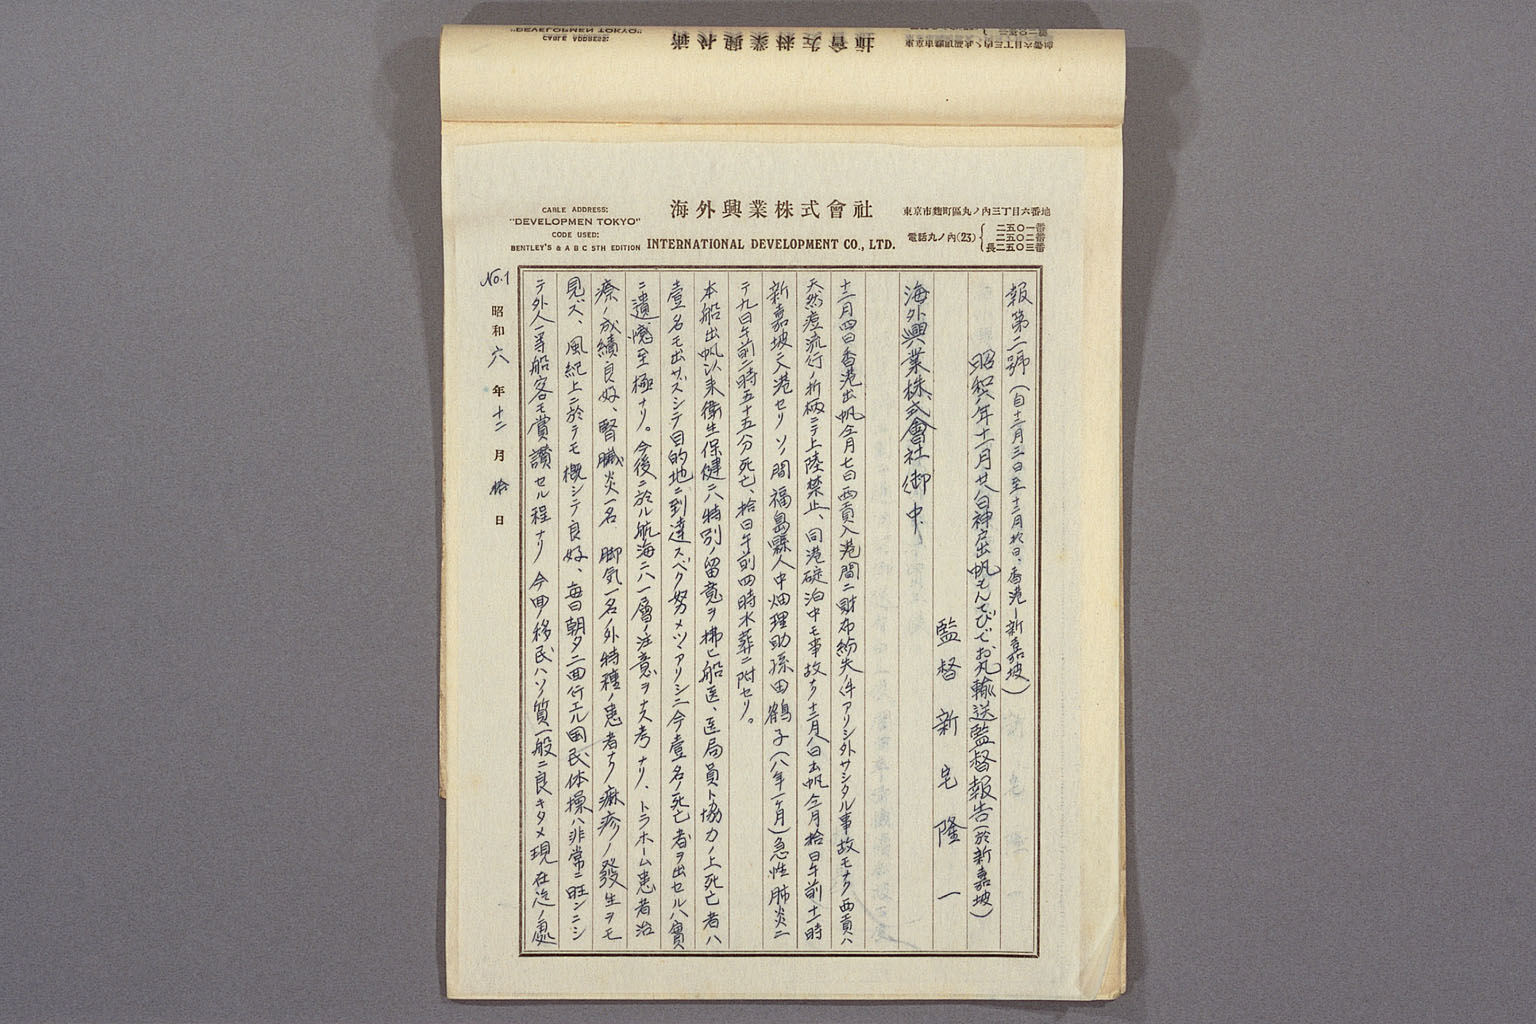 海外興業株式會社
INTERNATIONAL DEVELOPMENT CO., LTD.
CABLE ADDRESS:
"DEVELOPMEN TOKYO"
CODE USED:
BENTLEY'S & A B C 5TH EDITION
東京市麴町區丸ノ內三丁目六番地
電話丸ノ內(23)
二五〇一番
二五〇二番
長二五〇三番
報第二號(自十二月三日至十二月拾日、香港ー新嘉坡)
昭和六年十一月廿八日神戸出帆もんてびでお丸輸送監督報告(於新嘉坡)
監督 新宅隆一
海外興業株式會社御中
十二月四日香港出帆仝月七日西貢入港間ニ財布紛失ノ件アリシ外サシタル事故モナク西貢ハ
天然痘流行ノ折柄ニテ上陸禁止、同港碇泊中モ事故ナク十二月八日出帆仝月拾日午前十一時
新嘉坡ニ入港セリ ソノ間福島縣人中畑理助孫田鶴子(八年一ヶ月)急性肺炎ニ
テ九日午前二時五十五分死亡、拾日午前四時水葬ニ附セリ。
本船出帆以来衛生保健ニハ特別ノ留意ヲ拂ヒ船医、医局員ト協力ノ上死亡者ハ
壹名モ出サズシテ目的地ニ到達スベク努メツヽアリシニ今壹名ノ死亡者ヲ出セルハ實
ニ遺憾至極ナリ。今後ニ於ル航海ニハ一層ノ注意ヲナス考ナリ、トラホーム患者治
療ノ成績良好、腎臓炎一名 脚気一名ノ外特種ノ患者ナク痳疹ノ發生ヲモ
見ズ、風紀上ニ於テモ概シテ良好、毎日朝夕二回行エル国民体操ハ非常ニ旺ンニシ
テ外人一等船客モ賞讃セル程ナリ 今回ノ移民ハソノ質一般ニ良キタメ現在迄ノ處
No.1
昭和六年十二月拾日